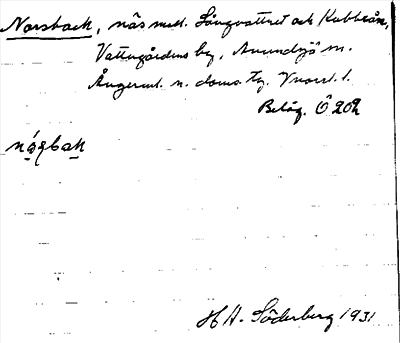 Norsback, näs mell. Långvattnet och Kubbeån,
Vattugårdens by, Anundsjö sn.
Ångerml. n. doms. Tg. Vnorrl. l.
Beläg. Ö 202
nó̱ṣbak
H A. Söderberg 1931